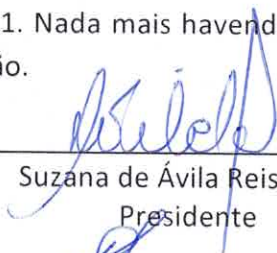 1. Nada mais havend
ão.
Suzana de Ávila Reis
Presidente